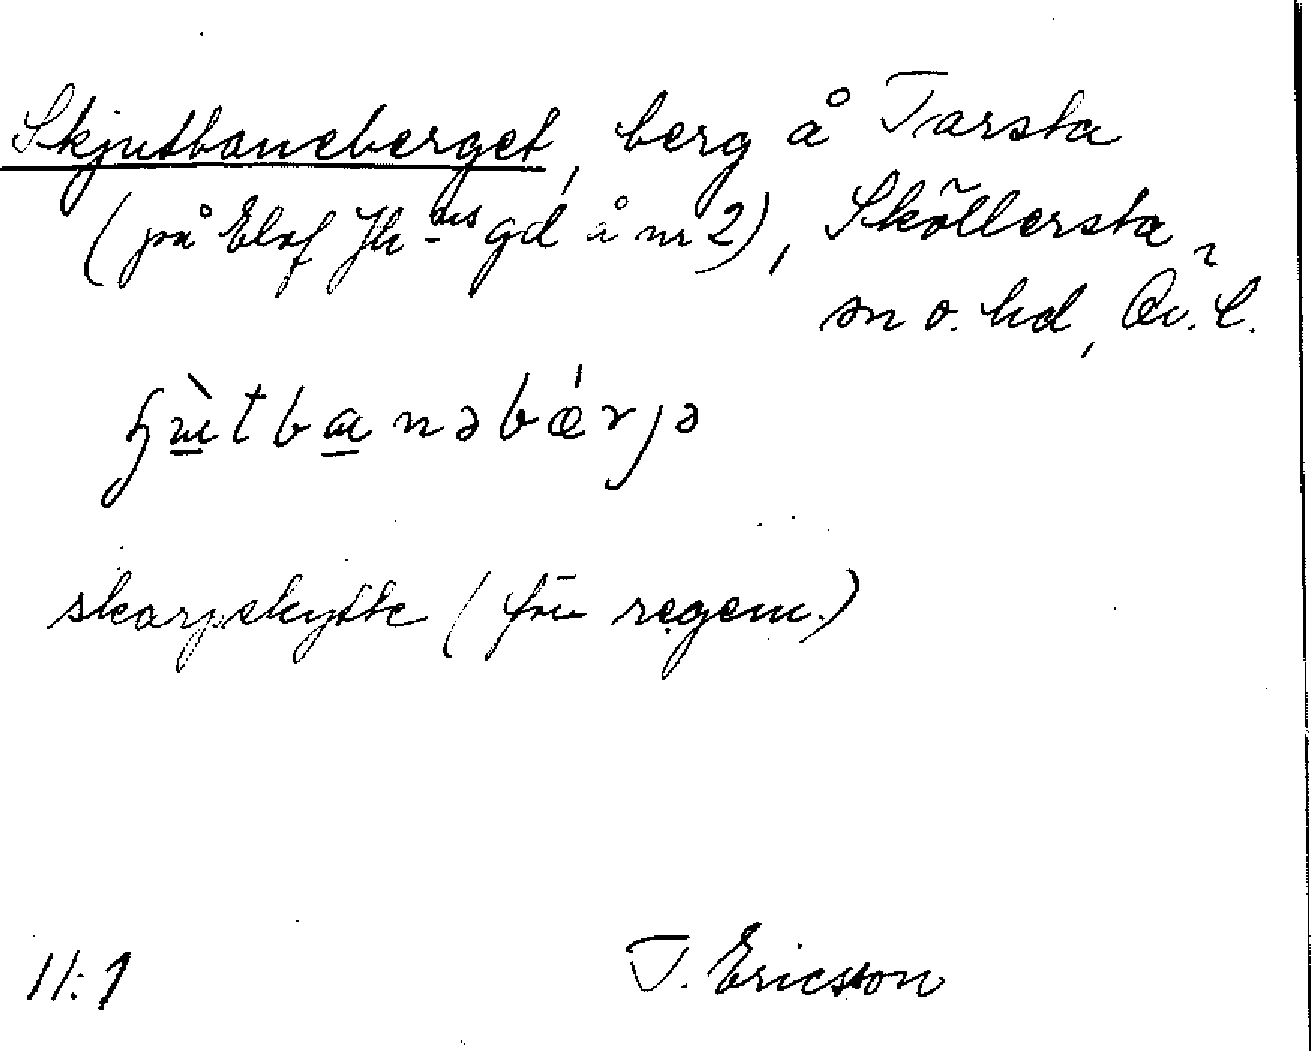 Skjutbaneberget, berg å Tarsta
(på Elof Jh-ns gd å nr 2), Sköllersta
sn o. hd, Ör. l.
skarpskytte (från regem.)
11:1 T. Ericson